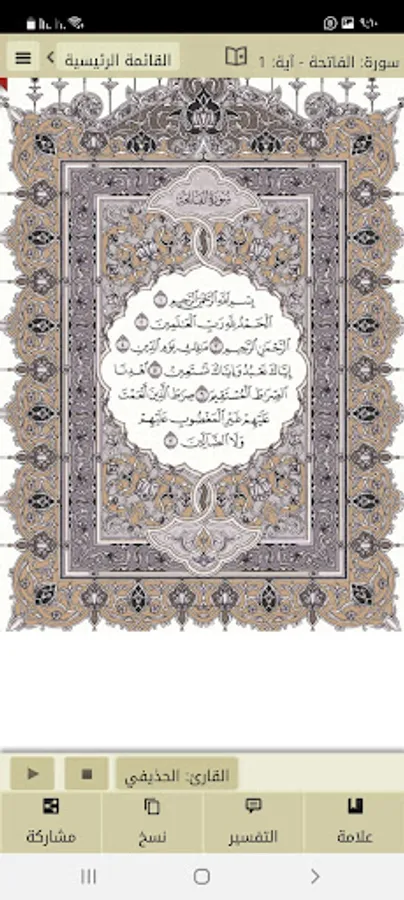 ٩:٤٠
سورة: الفاتحة - آية: 1
القائمة الرئيسية
سورة الفاتحة
بسم الله الرحمن الرحيم ١
الحمد لله رب العلمين ٢
الرحمن الرحيم ٣ ملك يوم الدين ٤
إياك نعبد وإياك نستعين ٥ اهدنا
الصرط المستقيم ٦ صرط الذين أنعمت
عليهم غير المغضوب عليهم
ولا الضالين ٧
القارئ: الحذيفي
علامة
التفسير
نسخ
مشاركة